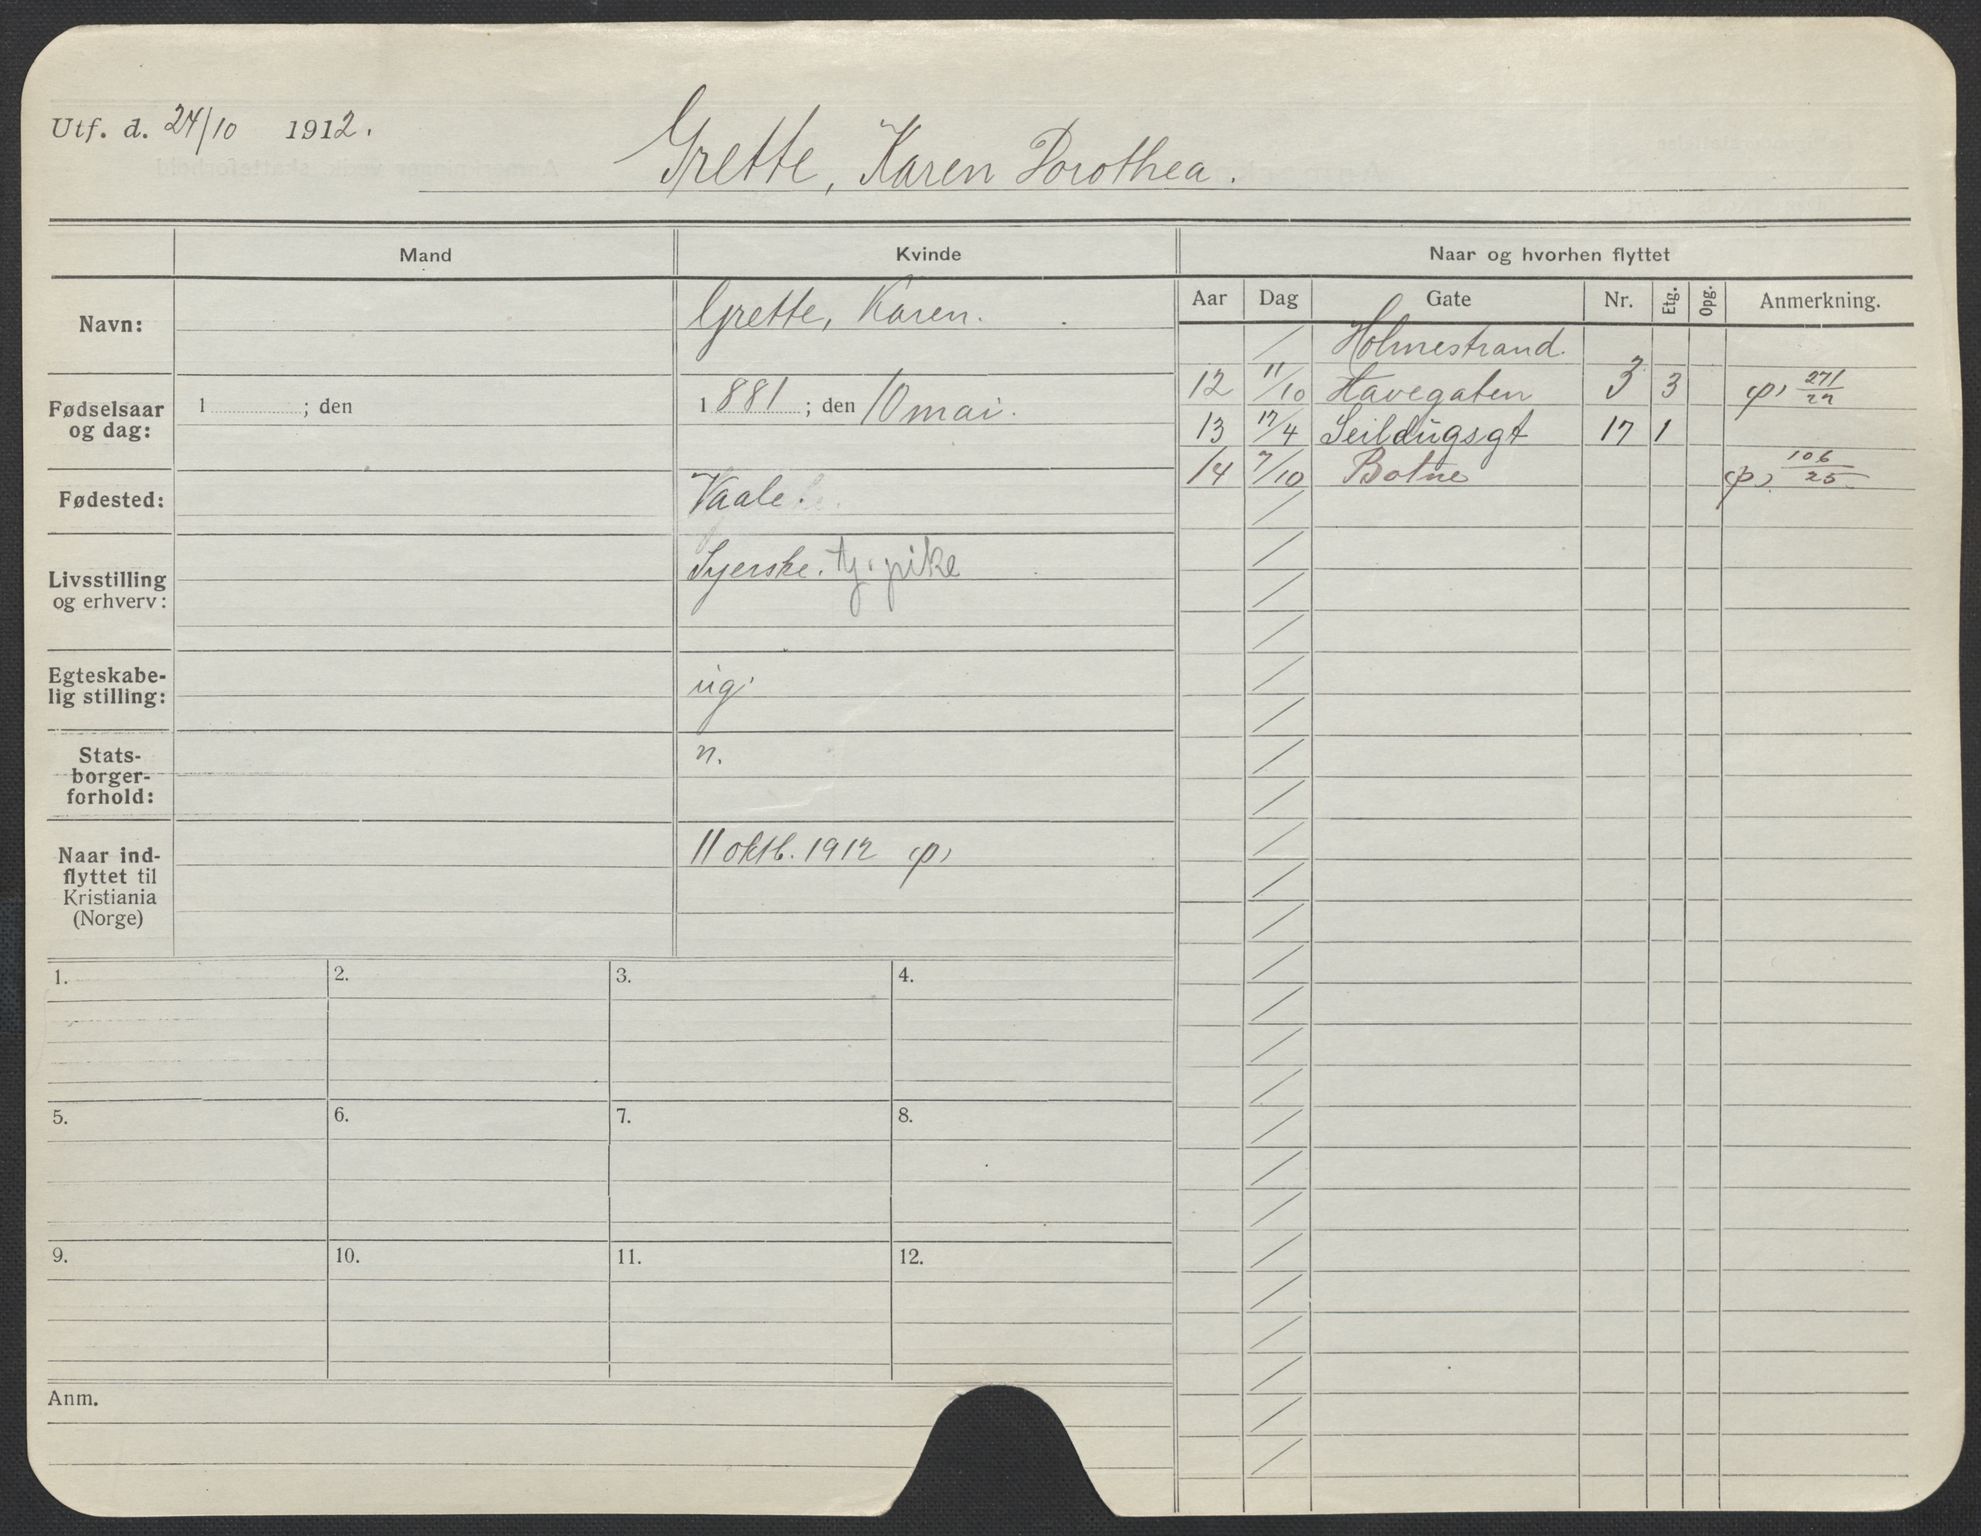 Utf. d. 24/10 1912.
Grette, Karen Dorothea.
Mand Kvinde Naar og hvorhen flyttet
Aar Dag Gate Nr. Etg. Opg. Anmerkning.
Navn: Grette, Karen.
Fødselsaar og dag: 1 ; den 1881 ; den 10 mai.
Fødested: Vaale.
Livsstilling og erhverv: Syerske. tj. pike
Egteskabe-
lig stilling: ug.
Stats-
borger-
forhold: n.
Naar ind-
flyttet til
Kristiania
(Norge) 11 oktb. 1912 (p)
/ Holmestrand.
12 11/10 Havegaten 3 3 (p) 271/22
13 17/4 Seildugsgt 17 1
14 7/10 Botne (p) 106/25
1. 2. 3. 4.
5. 6. 7. 8.
9. 10. 11. 12.
Anm.